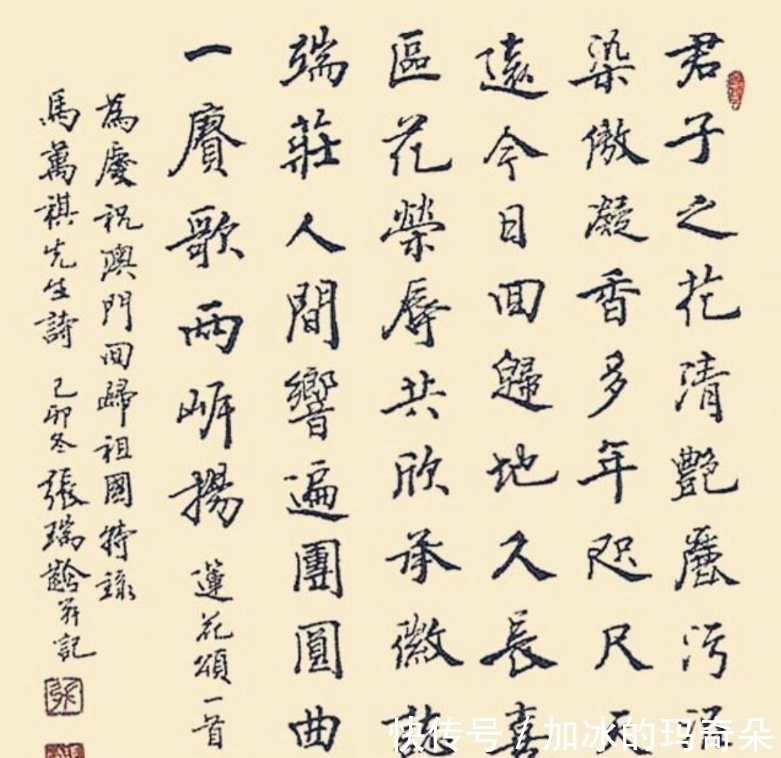 君子之花清艷麗污泥
染傲凝香多年咫尺天
遠今日回歸地久長喜
區花榮辱共欣承徽誌
端莊人間響遍團圓曲
一賡歌兩岸揚 蓮花頌一首
為慶祝澳門回歸祖國特錄
馬萬祺先生詩 己卯冬張瑞齡并記
快传号 / 加冰的玛奇朵